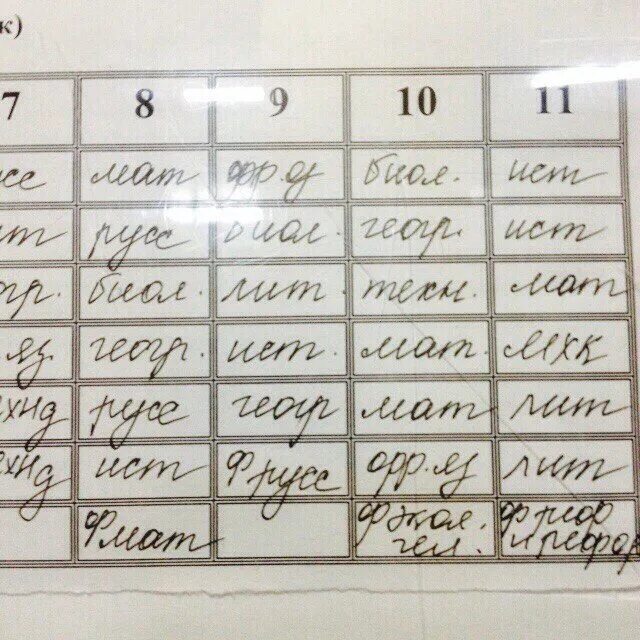 к)
7 8 9 10 11
сс мат фр.яз биол. ист
ит русс биол. геогр. ист
огр. биол. лит. техн. мат
.яз. геогр. ист. мат. МХК
ехнд русс геогр мат лит
ехнд ист Ф русс фр.яз лит
Ф мат Ф экол. Ф риф
чел. и рефор